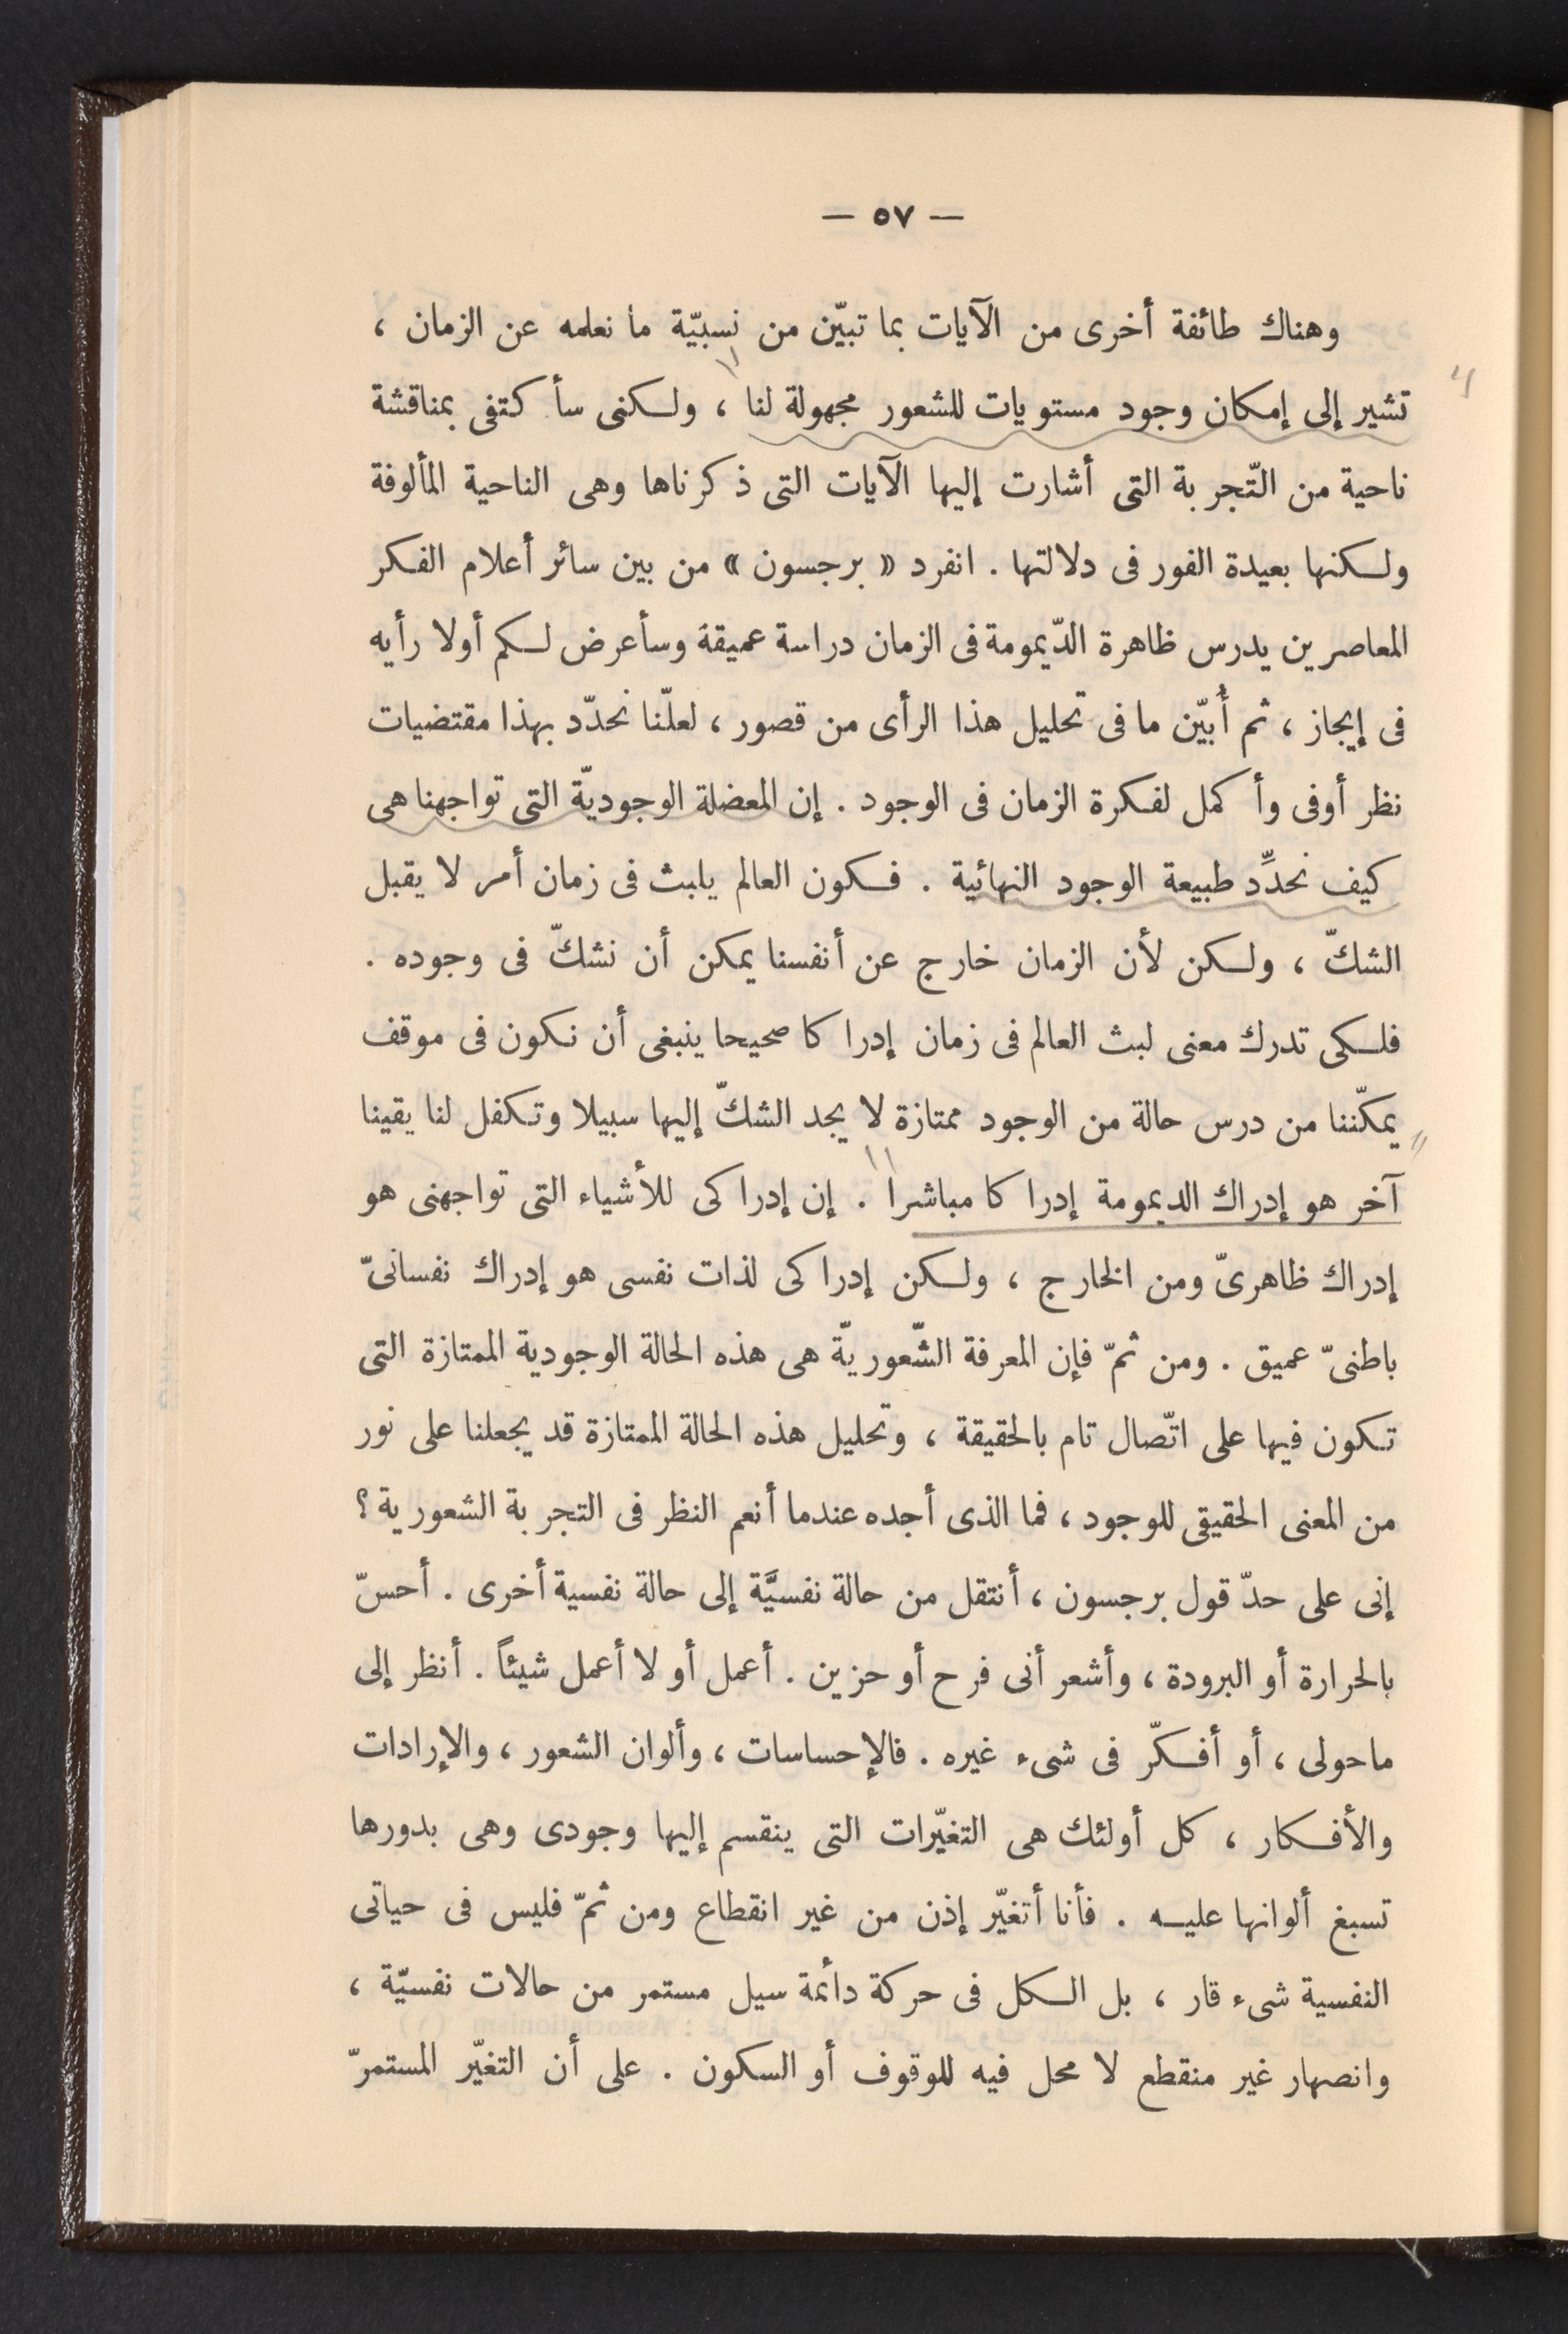 — ٥٧ —
وهناك طائفة أخرى من الآيات بما تبيّن من نسبيّة ما نعلمه عن الزمان ،
تشير إلى إمكان وجود مستويات للشعور مجهولة لنا ، ولكنى سأكتفى بمناقشة
ناحية من التّجربة التى أشارت إليها الآيات التى ذكرناها وهى الناحية المألوفة
ولكنها بعيدة الغور فى دلالتها . انفرد « برجسون » من بين سائر أعلام الفكر
المعاصرين يدرس ظاهرة الدّيمومة فى الزمان دراسة عميقة وسأعرض لكم أولا رأيه
فى إيجاز ، ثم أُبيّن ما فى تحليل هذا الرأى من قصور ، لعلّنا نحدّد بهذا مقتضيات
نظر أوفى وأكمل لفكرة الزمان فى الوجود . إن المعضلة الوجوديّة التى تواجهنا هى
كيف نحدِّد طبيعة الوجود النهائية . فكون العالم يلبث فى زمان أمر لا يقبل
الشكّ ، ولكن لأن الزمان خارج عن أنفسنا يمكن أن نشكّ فى وجوده .
فلكى تدرك معنى لبث العالم فى زمان إدراكا صحيحا ينبغى أن نكون فى موقف
يمكّننا من درس حالة من الوجود ممتازة لا يجد الشكّ إليها سبيلا وتكفل لنا يقينا
آخر هو إدراك الديمومة إدراكا مباشرا . إن إدراكى للأشياء التى تواجهنى هو
إدراك ظاهرىّ ومن الخارج ، ولكن إدراكى لذات نفسى هو إدراك نفسانىّ
باطنىّ عميق . ومن ثمّ فإن المعرفة الشّعوريّة هى هذه الحالة الوجودية الممتازة التى
تكون فيها على اتّصال تام بالحقيقة ، وتحليل هذه الحالة الممتازة قد يجعلنا على نور
من المعنى الحقيقى للوجود ، فما الذى أجده عندما أنعم النظر فى التجربة الشعورية ؟
إنى على حدّ قول برجسون ، أنتقل من حالة نفسيَّة إلى حالة نفسية أخرى . أحسّ
بالحرارة أو البرودة ، وأشعر أنى فرح أو حزين . أعمل أو لا أعمل شيئاً . أنظر إلى
ماحولى ، أو أفكّر فى شىء غيره . فالإحساسات ، وألوان الشعور ، والإرادات
والأفكار ، كل أولئك هى التغيّرات التى ينقسم إليها وجودى وهى بدورها
تسبغ ألوانها عليه . فأنا أتغيّر إذن من غير انقطاع ومن ثمّ فليس فى حياتى
النفسية شىء قار ، بل الكل فى حركة دائمة سيل مستمر من حالات نفسيّة ،
وانصهار غير منقطع لا محل فيه للوقوف أو السكون . على أن التغيّر المستمرّ